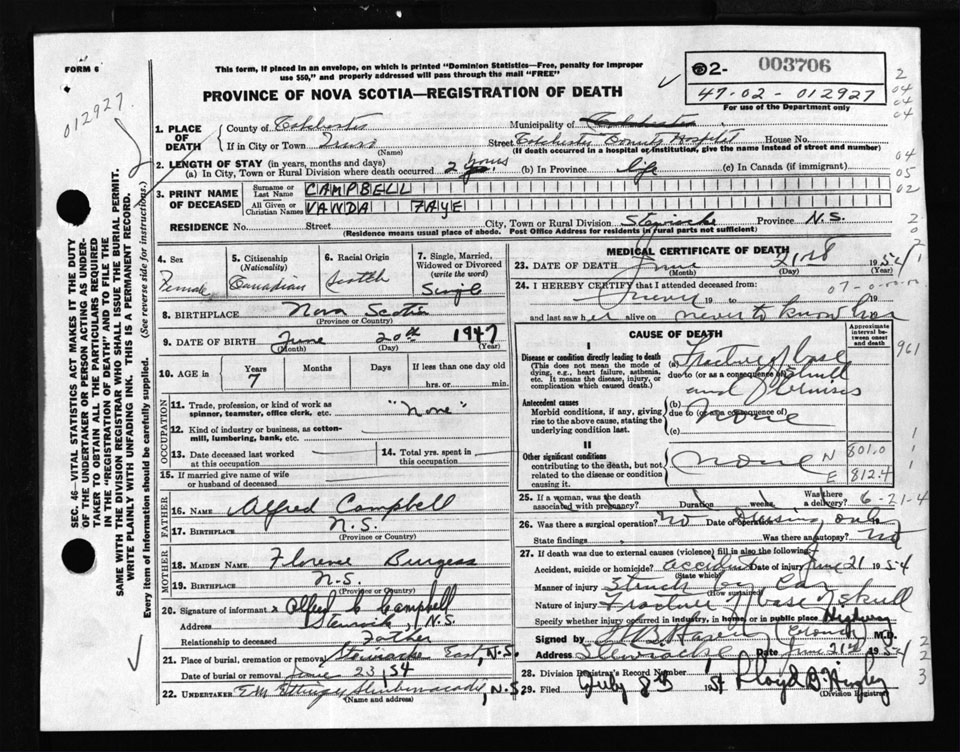 FORM 6
This form, if placed in an envelope, on which is printed "Dominion Statistics—Free, penalty for improper
use $50," and properly addressed will pass through the mail "FREE"
PROVINCE OF NOVA SCOTIA—REGISTRATION OF DEATH
2- 003706
47-02-012927
For use of the Department only
012927
SEC. 46—VITAL STATISTICS ACT MAKES IT THE DUTY
OF THE UNDERTAKER OR PERSON ACTING AS UNDER-
TAKER TO OBTAIN ALL THE PARTICULARS REQUIRED
IN THE "REGISTRATION OF DEATH" AND TO FILE THE
SAME WITH THE DIVISION REGISTRAR WHO SHALL ISSUE THE BURIAL PERMIT.
WRITE PLAINLY WITH UNFADING INK. THIS IS A PERMANENT RECORD.
Every item of information should be carefully supplied. (See reverse side for instructions.)
1. PLACE OF DEATH
County of Colchester Municipality of Colchester
If in City or Town Truro Street Colchester County Hospital House No.
(Name) (If death occurred in a hospital or institution, give the name instead of street and number)
2. LENGTH OF STAY (in years, months and days)
(a) In City, Town or Rural Division where death occurred 2 hours (b) In Province life (c) In Canada (if immigrant)
3. PRINT NAME OF DECEASED
Surname or Last Name CAMPBELL
All Given or Christian Names VANDA FAYE
RESIDENCE No. Street City, Town or Rural Division Stewiacke Province N.S.
(Residence means usual place of abode. Post Office Address for residents in rural parts not sufficient)
4. Sex Female
5. Citizenship (Nationality) Canadian
6. Racial Origin Scotch
7. Single, Married, Widowed or Divorced (write the word) Single
8. BIRTHPLACE Nova Scotia
(Province or Country)
9. DATE OF BIRTH June 20th 1947
(Month) (Day) (Year)
10. AGE in Years 7 Months Days If less than one day old
hrs. or min.
OCCUPATION
11. Trade, profession, or kind of work as
spinner, teamster, office clerk, etc. "None"
12. Kind of industry or business, as cotton-
mill, lumbering, bank, etc.
13. Date deceased last worked at this occupation
14. Total yrs. spent in this occupation
15. If married give name of wife
or husband of deceased
FATHER
16. Name Alfred Campbell
17. Birthplace N.S.
(Province or Country)
MOTHER
18. MAIDEN NAME Florence Burgess
19. BIRTHPLACE N.S.
(Province or Country)
20. Signature of informant Alfred C Campbell
Address Stewiacke, N.S.
Relationship to deceased Father
21. Place of burial, cremation or removal Stewiacke East, N.S.
Date of burial or removal June 23/54
22. UNDERTAKER Shubenacadie, N.S.
(Name and address)
MEDICAL CERTIFICATE OF DEATH
23. DATE OF DEATH June 21st 1954
(Month) (Day) (Year)
24. I HEREBY CERTIFY that I attended deceased from:
never 19 to 19
and last saw her alive on never to know her
CAUSE OF DEATH
Approximate interval between onset and death
I
Disease or condition directly leading to death
(This does not mean the mode of
dying, e.g., heart failure, asthenia,
etc. It means the disease, injury, or
complication which caused death.)
(a) Fracture of base
due to (or as a consequence of) skull
and
Antecedent causes
Morbid conditions, if any, giving
rise to the above cause, stating the
underlying condition last.
(b)
due to (or as a consequence of) none
(c)
II
Other significant conditions
contributing to the death, but not
related to the disease or condition
causing it.
none
N 801.0
E 812.4
25. If a woman, was the death associated with pregnancy? Duration weeks Was there a delivery? 6-21-4
26. Was there a surgical operation? No Date of operation Dressing only
State findings Was there an autopsy? No
27. If death was due to external causes (violence) fill in also the following:
Accident, suicide or homicide? accident Date of injury June 21 1954
(State which)
Manner of injury Struck by Car
(How sustained)
Nature of injury Fracture of base of skull
Specify whether injury occurred in industry, in home, or in public place Highway
Signed by M.D.
Address Stewiacke Date June 21st 1954
28. Division Registrar's Record Number 1
29. Filed July 8th 1954
(Division Registrar)